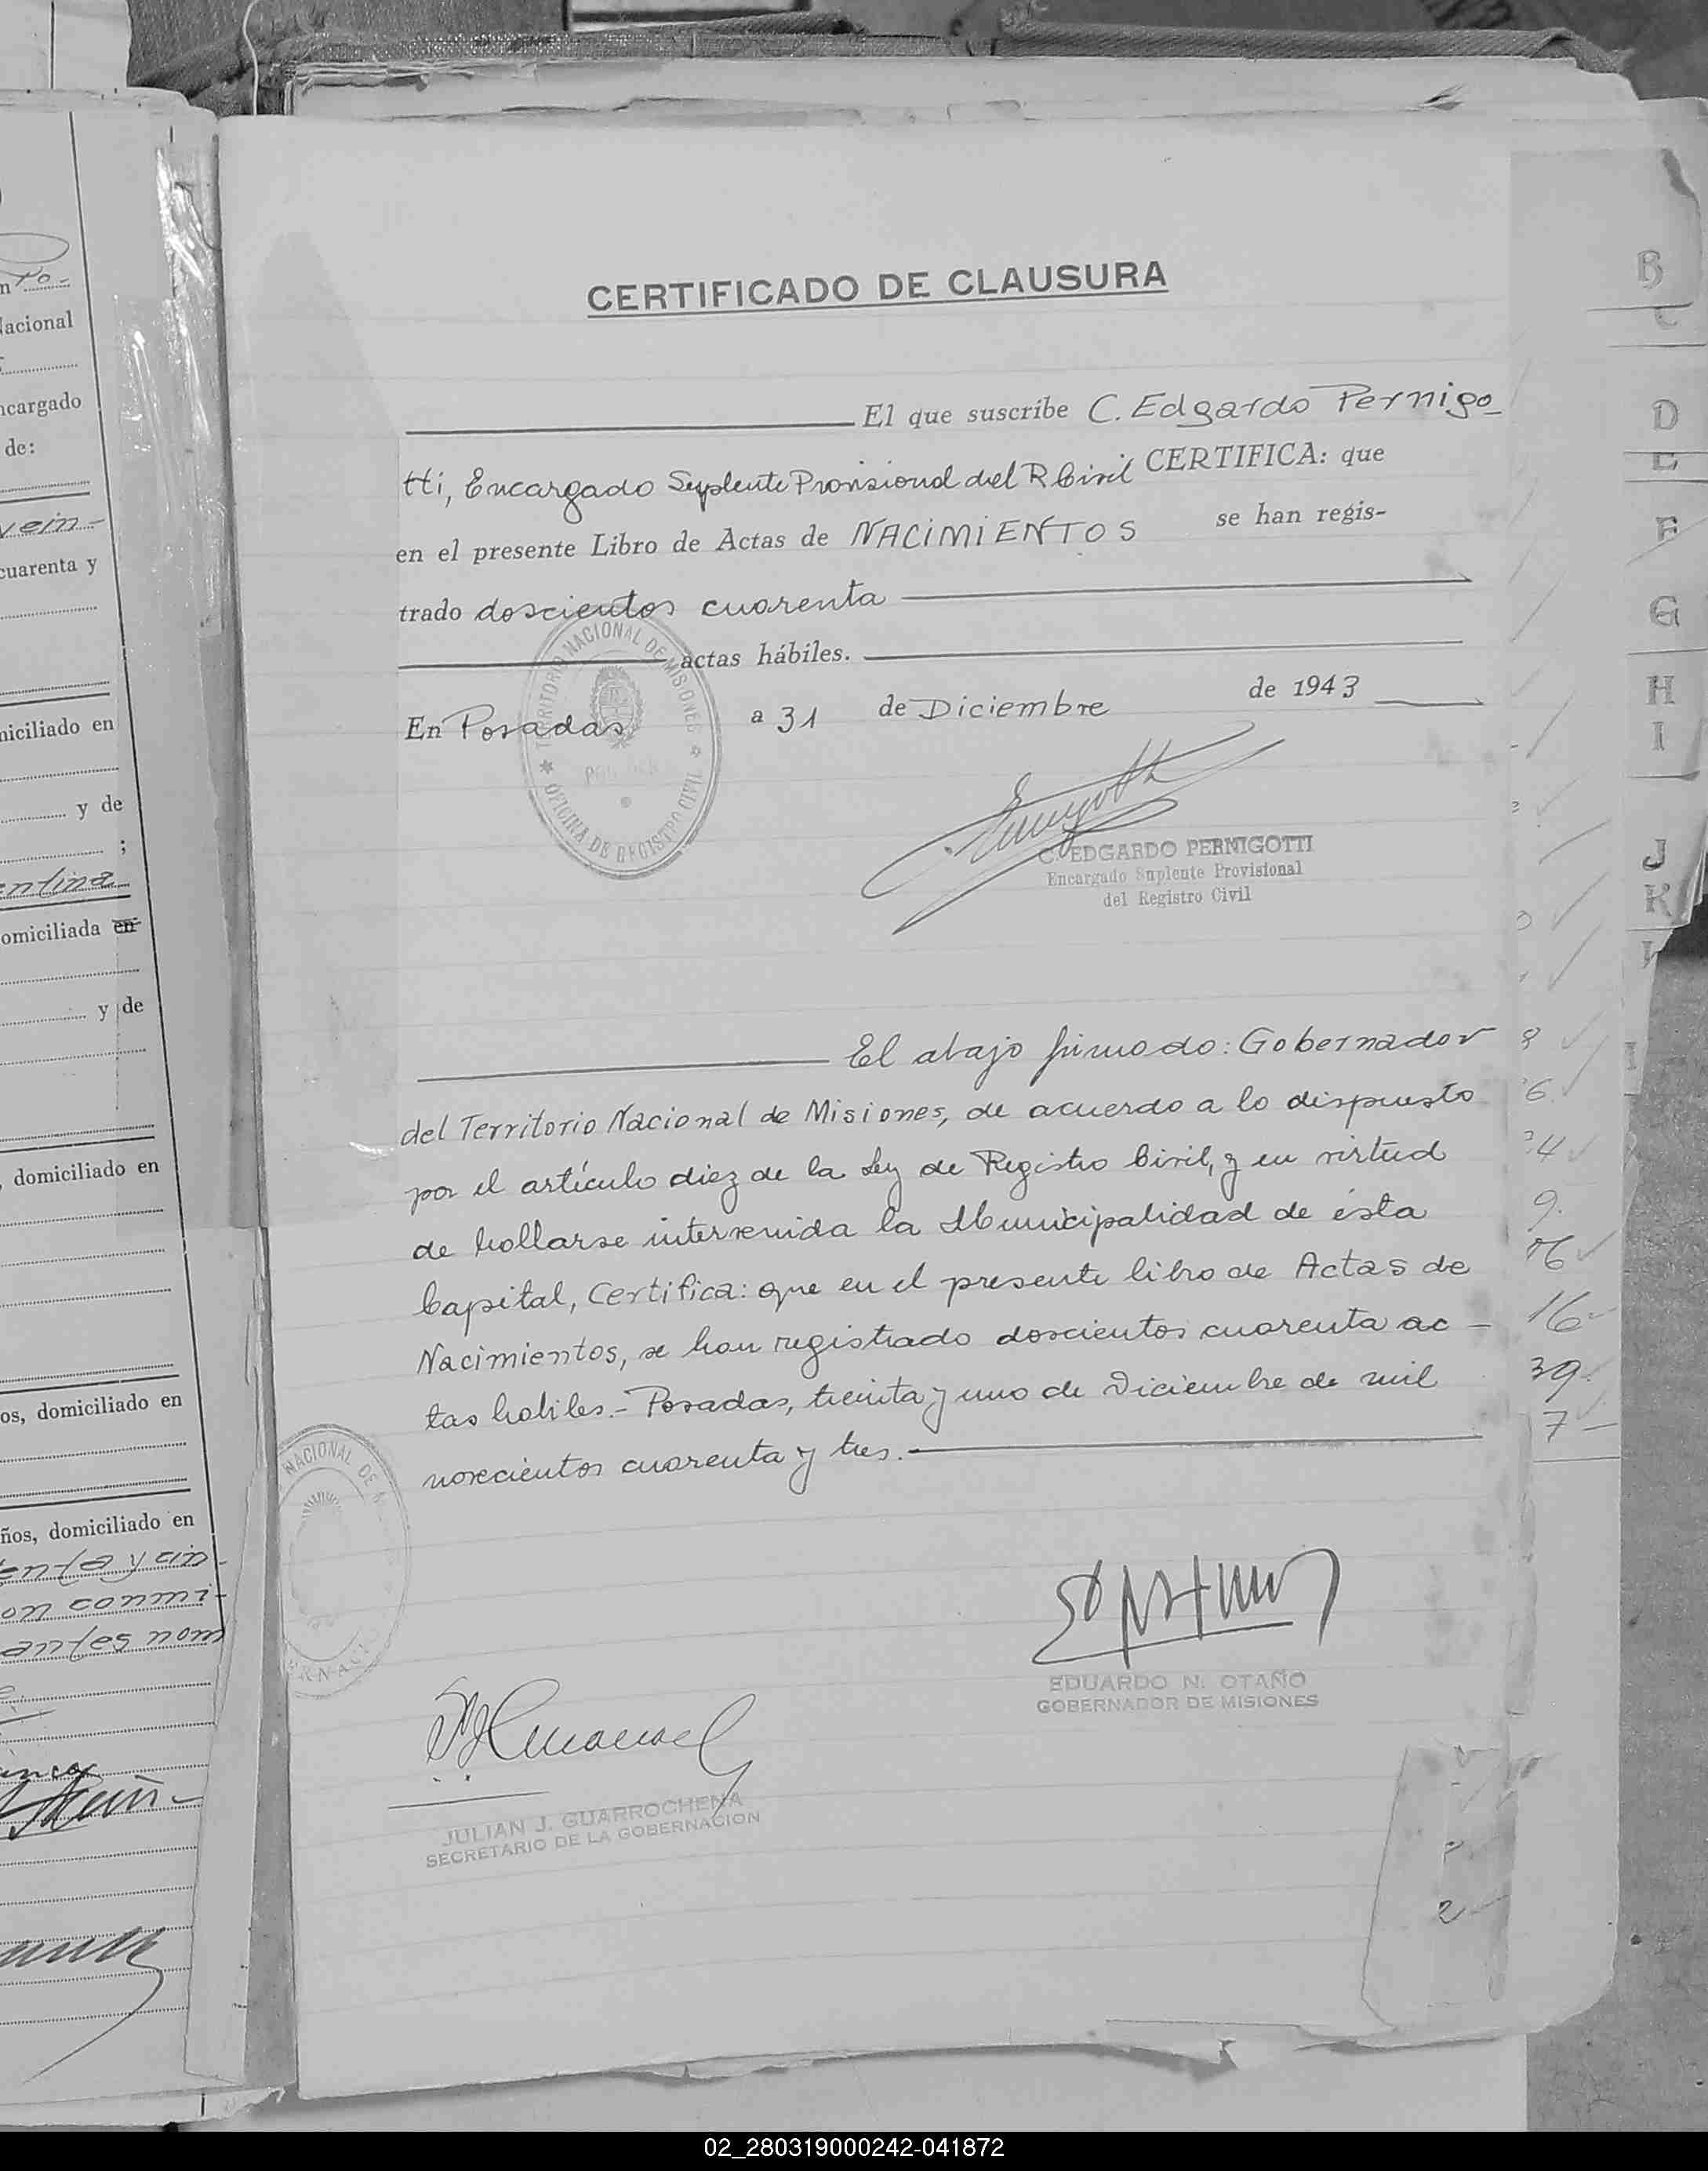 n ro-
Nacional
ncargado
de:
vein-
cuarenta y
niciliado en
y de
;
entina
omiciliada en
y de
, domiciliado en
os, domiciliado en
ños, domiciliado en
enta y cin-
on conmi-
antes nom
CERTIFICADO DE CLAUSURA
El que suscribe C. Edgardo Pernigo-
tti, Encargado Suplente Provisional del R Civil CERTIFICA: que
en el presente Libro de Actas de NACIMIENTOS se han regis-
trado doscientos cuarenta
actas hábiles.
En Posadas a 31 de Diciembre de 1943
TERRITORIO NACIONAL DE MISIONES
OFICINA DE REGISTRO CIVIL
C. EDGARDO PERNIGOTTI
Encargado Suplente Provisional
del Registro Civil
El abajo firmado: Gobernador
del Territorio Nacional de Misiones, de acuerdo a lo dispuesto
por el artículo diez de la Ley de Registro Civil, y en virtud
de hallarse intervenida la Municipalidad de ésta
Capital, Certifica: que en el presente libro de Actas de
Nacimientos, se han registrado doscientos cuarenta ac-
tas habiles.- Posadas, treinta y uno de Diciembre de mil
novecientos cuarenta y tres.
NACIONAL DE
EDUARDO N. OTAÑO
GOBERNADOR DE MISIONES
JULIAN J. GUARROCHENA
SECRETARIO DE LA GOBERNACION
B
C
D
E
F
G
H
I
J
K
8
6
4
9
16
39
7
2
02_280319000242-041872